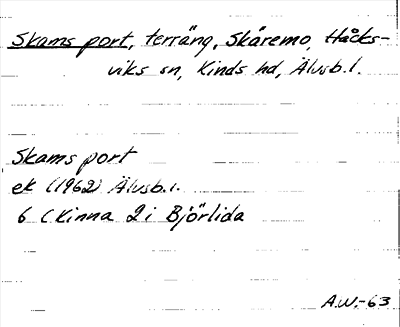 Skams port, terräng, Skåremo, Håcks-
viks sn, Kinds hd, Älvsb.l.
Skams port
ek (1962) Älvsb.l.
6 (Kinna 2 i Björlida
A.W.-63